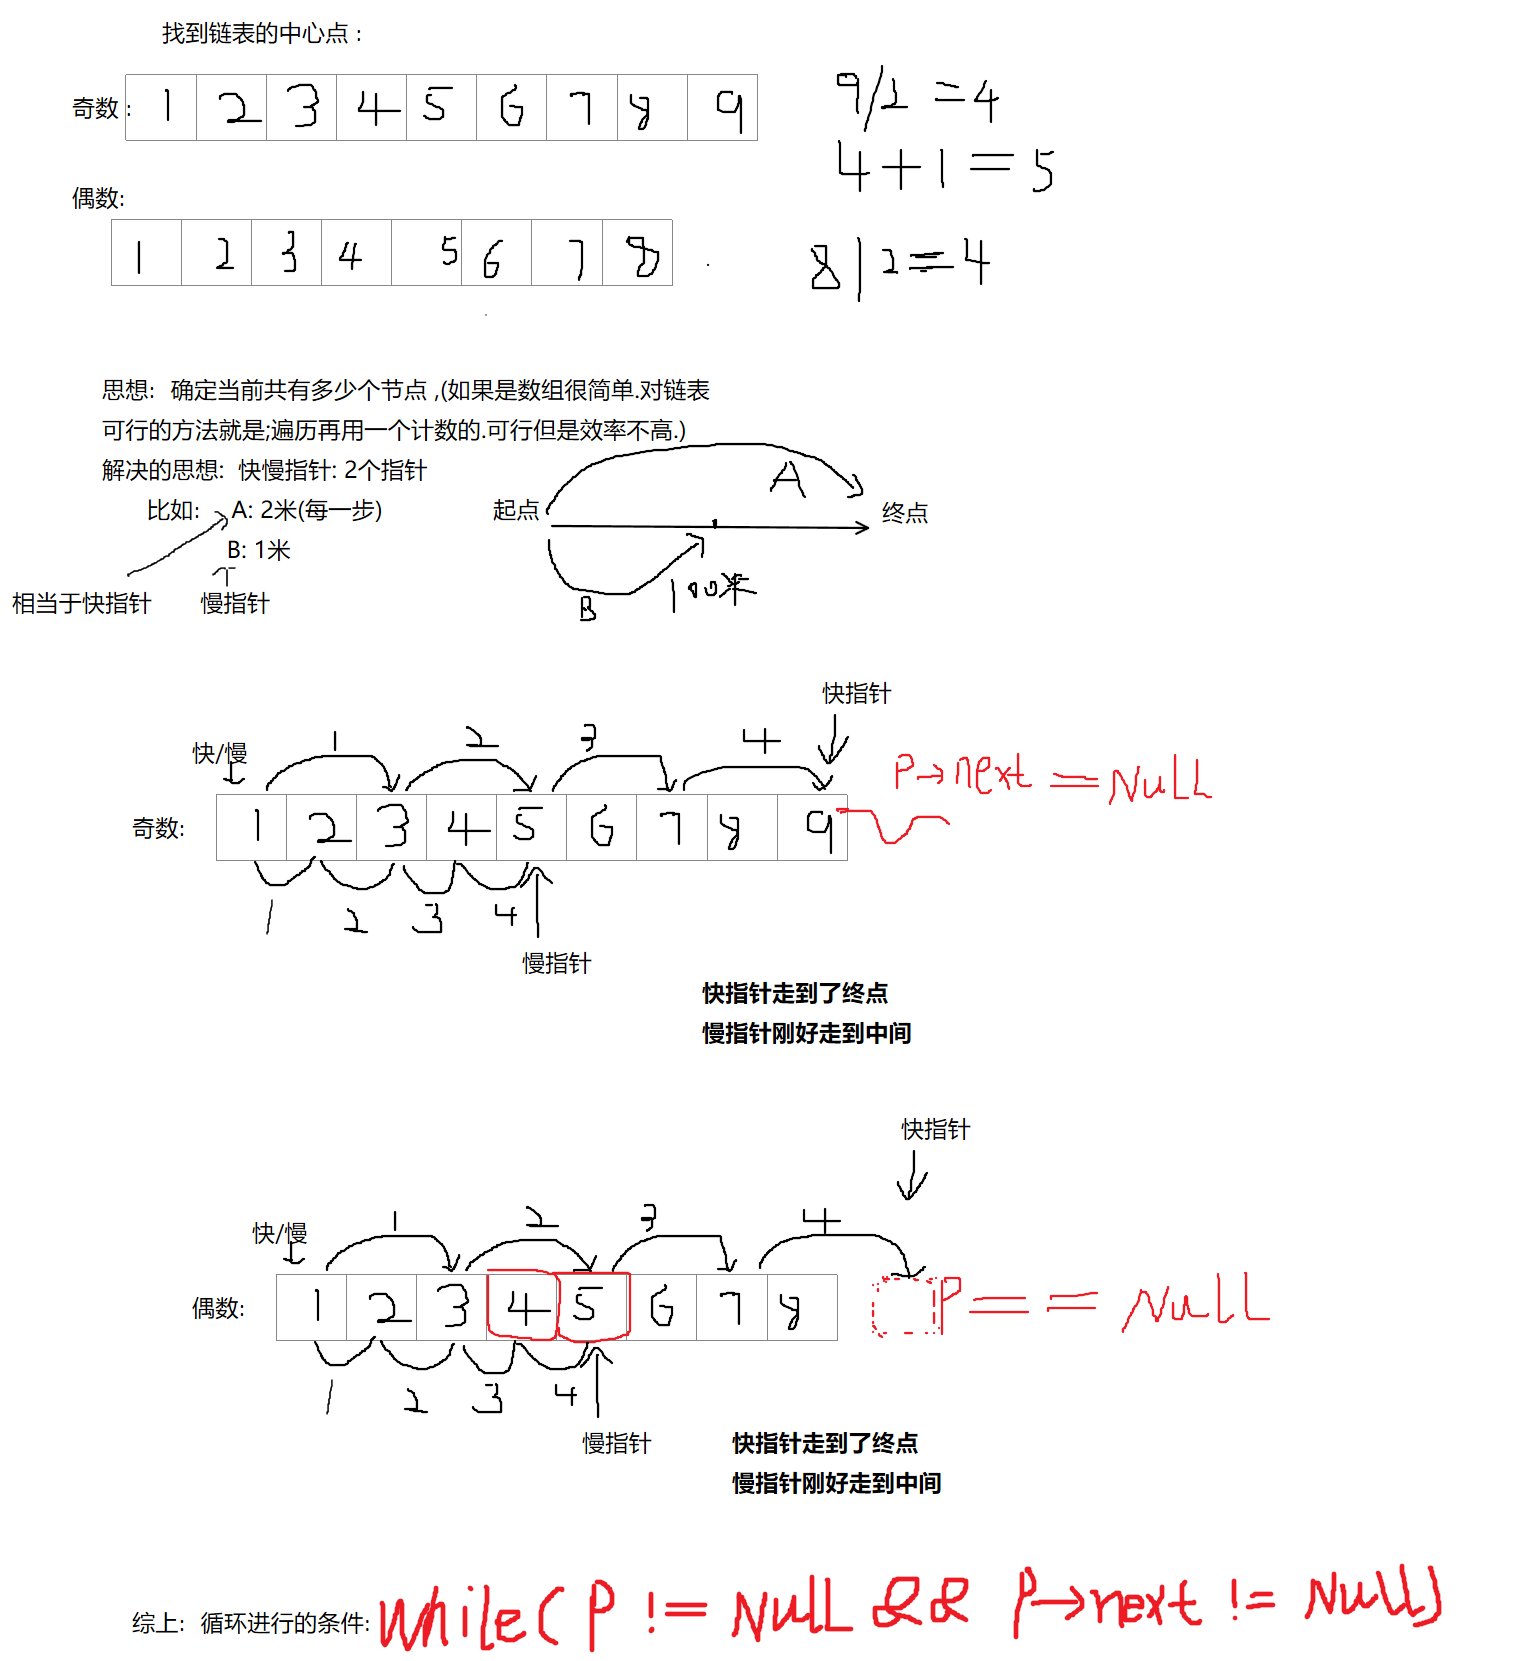 找到链表的中心点 :
奇数 : 1 2 3 4 5 6 7 8 9
9/2 =4
4+1=5
偶数:
1 2 3 4 5 6 7 8
8/2=4
思想: 确定当前共有多少个节点 ,(如果是数组很简单.对链表
可行的方法就是;遍历再用一个计数的.可行但是效率不高.)
解决的思想: 快慢指针: 2个指针
比如: A: 2米(每一步)
B: 1米
相当于快指针 慢指针
A
起点 终点
B 100米
快指针
快/慢 1 2 3 4
P→next ==NULL
奇数: 1 2 3 4 5 6 7 8 9
1 2 3 4
慢指针
快指针走到了终点
慢指针刚好走到中间
快指针
快/慢 1 2 3 4
偶数: 1 2 3 4 5 6 7 8 P== NULL
1 2 3 4
慢指针
快指针走到了终点
慢指针刚好走到中间
综上: 循环进行的条件: while(P != NULL && P→next != NULL)